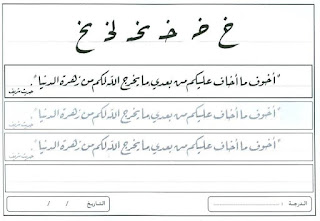 خ خ خ خ لخ خ
"أخوف ما أخاف عليكم من بعدي ما يخرج الله لكم من زهرة الدنيا" حديث شريف
"أخوف ما أخاف عليكم من بعدي ما يخرج الله لكم من زهرة الدنيا" حديث شريف
"أخوف ما أخاف عليكم من بعدي ما يخرج الله لكم من زهرة الدنيا" حديث شريف
الدرجة : التاريخ / /